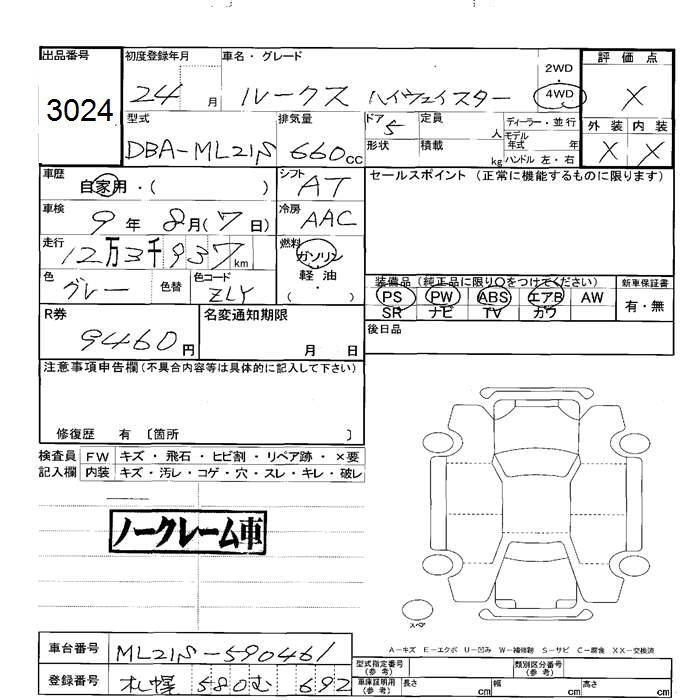 出品番号 初度登録年月 車名・グレード 評価点
3024 24 月 ルークス ハイウェイスター 2WD ・ 4WD X
型式 排気量 ドア 定員 ディーラー・並行 外装 内装
DBA-ML21S 660 CC 5 人 モデル年式 年 X X
形状 積載 kg ハンドル 左・右
車歴 自家用・( ) シフト AT セールスポイント (正常に機能するものに限ります)
車検 9年 8月(7日) 冷房 AAC
走行 12万3千937 km 燃料 ガソリン
軽油
( )
色 グレー 色替 色コード ZLY
装備品 (純正品に限り○をつけてください) 新車保証書
PS PW ABS エアB AW 有・無
SR ナビ TV カワ
R券 9460円 名変通知期限 月 日 後日品
注意事項申告欄(不具合内容等は具体的に記入して下さい)
修復歴 有 〔箇所 〕
検査員 FW キズ・飛石・ヒビ割・リペア跡・×要
記入欄 内装 キズ・汚レ・コゲ・穴・スレ・キレ・破レ
ノークレーム車
スペア
A-キズ E-エクボ U-凹み W-補修跡 S-サビ C-腐食 XX-交換済
車台番号 ML21S-590461 型式指定番号(参考) 類別区分番号(参考)
登録番号 札幌 580 む 692 車庫証明用(参考) 長さ cm 幅 cm 高さ cm